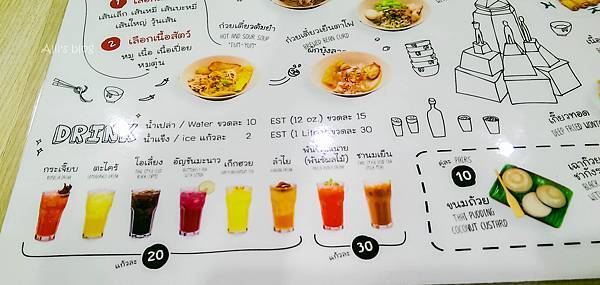 1 เลือกเส้น
เส้นเล็ก เส้นหมี่ เส้นบะหมี่
เส้นใหญ่ วุ้นเส้น
2 เลือกเนื้อสัตว์
หมู เนื้อ เนื้อเปื่อย
หมูตุ๋น
ก๋วยเตี๋ยวต้มยำ
HOT AND SOUR SOUP
"TUM-YUM"
ก๋วยเตี๋ยวเย็นตาโฟ
RED BEAN CURD
Ajii's blog
DRINK
น้ำเปล่า / Water ขวดละ 10
น้ำแข็ง / ice แก้วละ 2
EST (12 oz.) ขวดละ 15
EST (1 Liter) ขวดละ 30
กระเจี๊ยบ
ตะไคร้
โอเลี้ยง
อัญชันมะนาว
เก๊กฮวย
ลำไย
(พันช์ผลไม้)
ชานมเย็น
แก้วละ 20
แก้วละ 30
คู่ละ PAIRS
10
ขนมถ้วย
THAI PUDDING
COCONUT CUSTARD
เกี๊ยวทอด
DEEP FRIED WONT